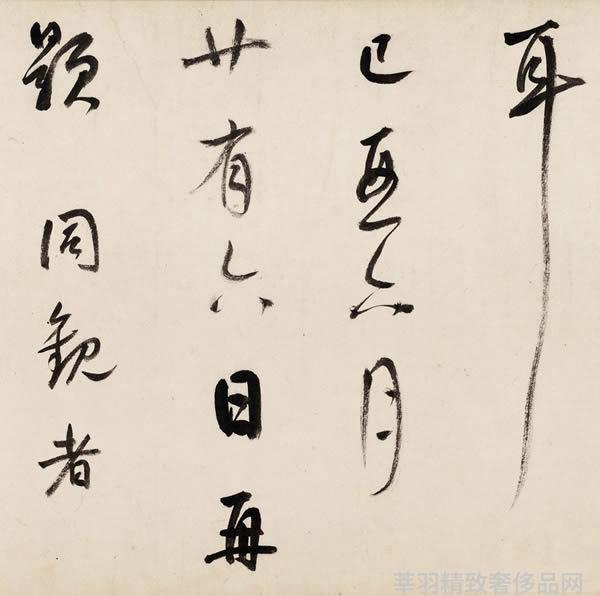 耳
己亥六月
廿有六日再
题 同觀者
莘羽精致奢侈品网